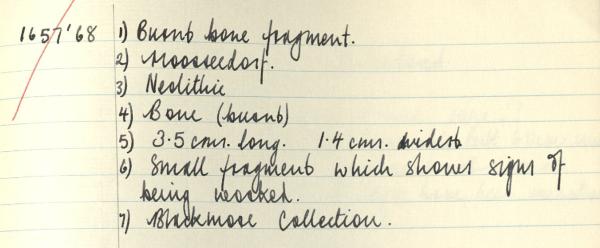 1657'68 1) Burnt bone fragment.
2) Moosseedorf.
3) Neolithic
4) Bone (burnt)
5) 3.5 cms. long. 1.4 cms. widest
6) Small fragment which shows signs of
being worked.
7) Blackmore Collection.